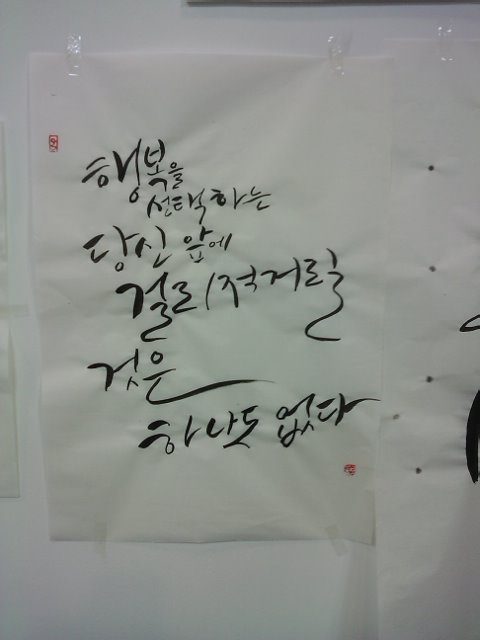 행복을
선택하는
당신 앞에
걸리적거릴
것은
하나도 없다